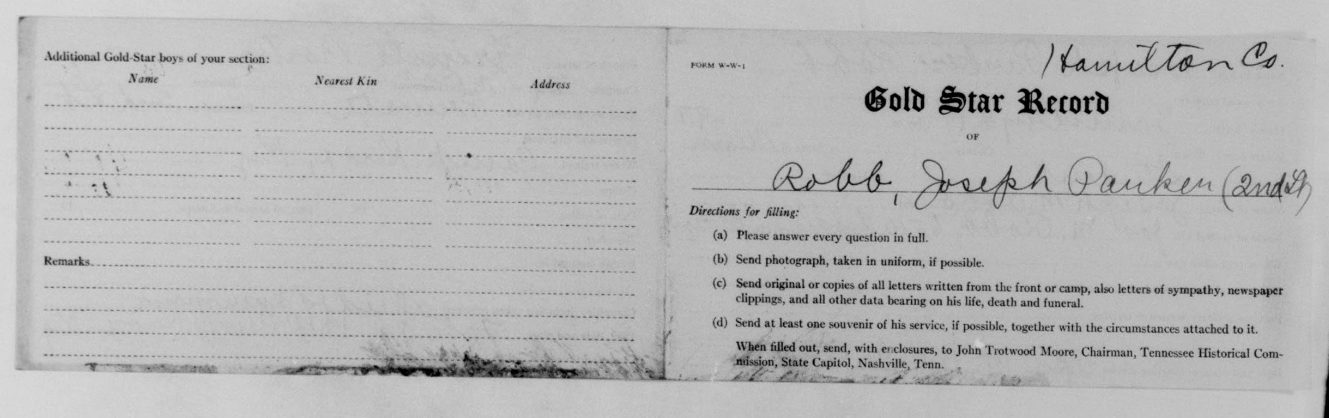 Additional Gold-Star boys of your section:
Name Nearest Kin Address
Remarks
FORM W-W-1
Hamilton Co.
Gold Star Record
OF
Robb, Joseph Panken (2nd Lt)
Directions for filling:
(a) Please answer every question in full.
(b) Send photograph, taken in uniform, if possible.
(c) Send original or copies of all letters written from the front or camp, also letters of sympathy, newspaper
clippings, and all other data bearing on his life, death and funeral.
(d) Send at least one souvenir of his service, if possible, together with the circumstances attached to it.
When filled out, send, with enclosures, to John Trotwood Moore, Chairman, Tennessee Historical Com-
mission, State Capitol, Nashville, Tenn.